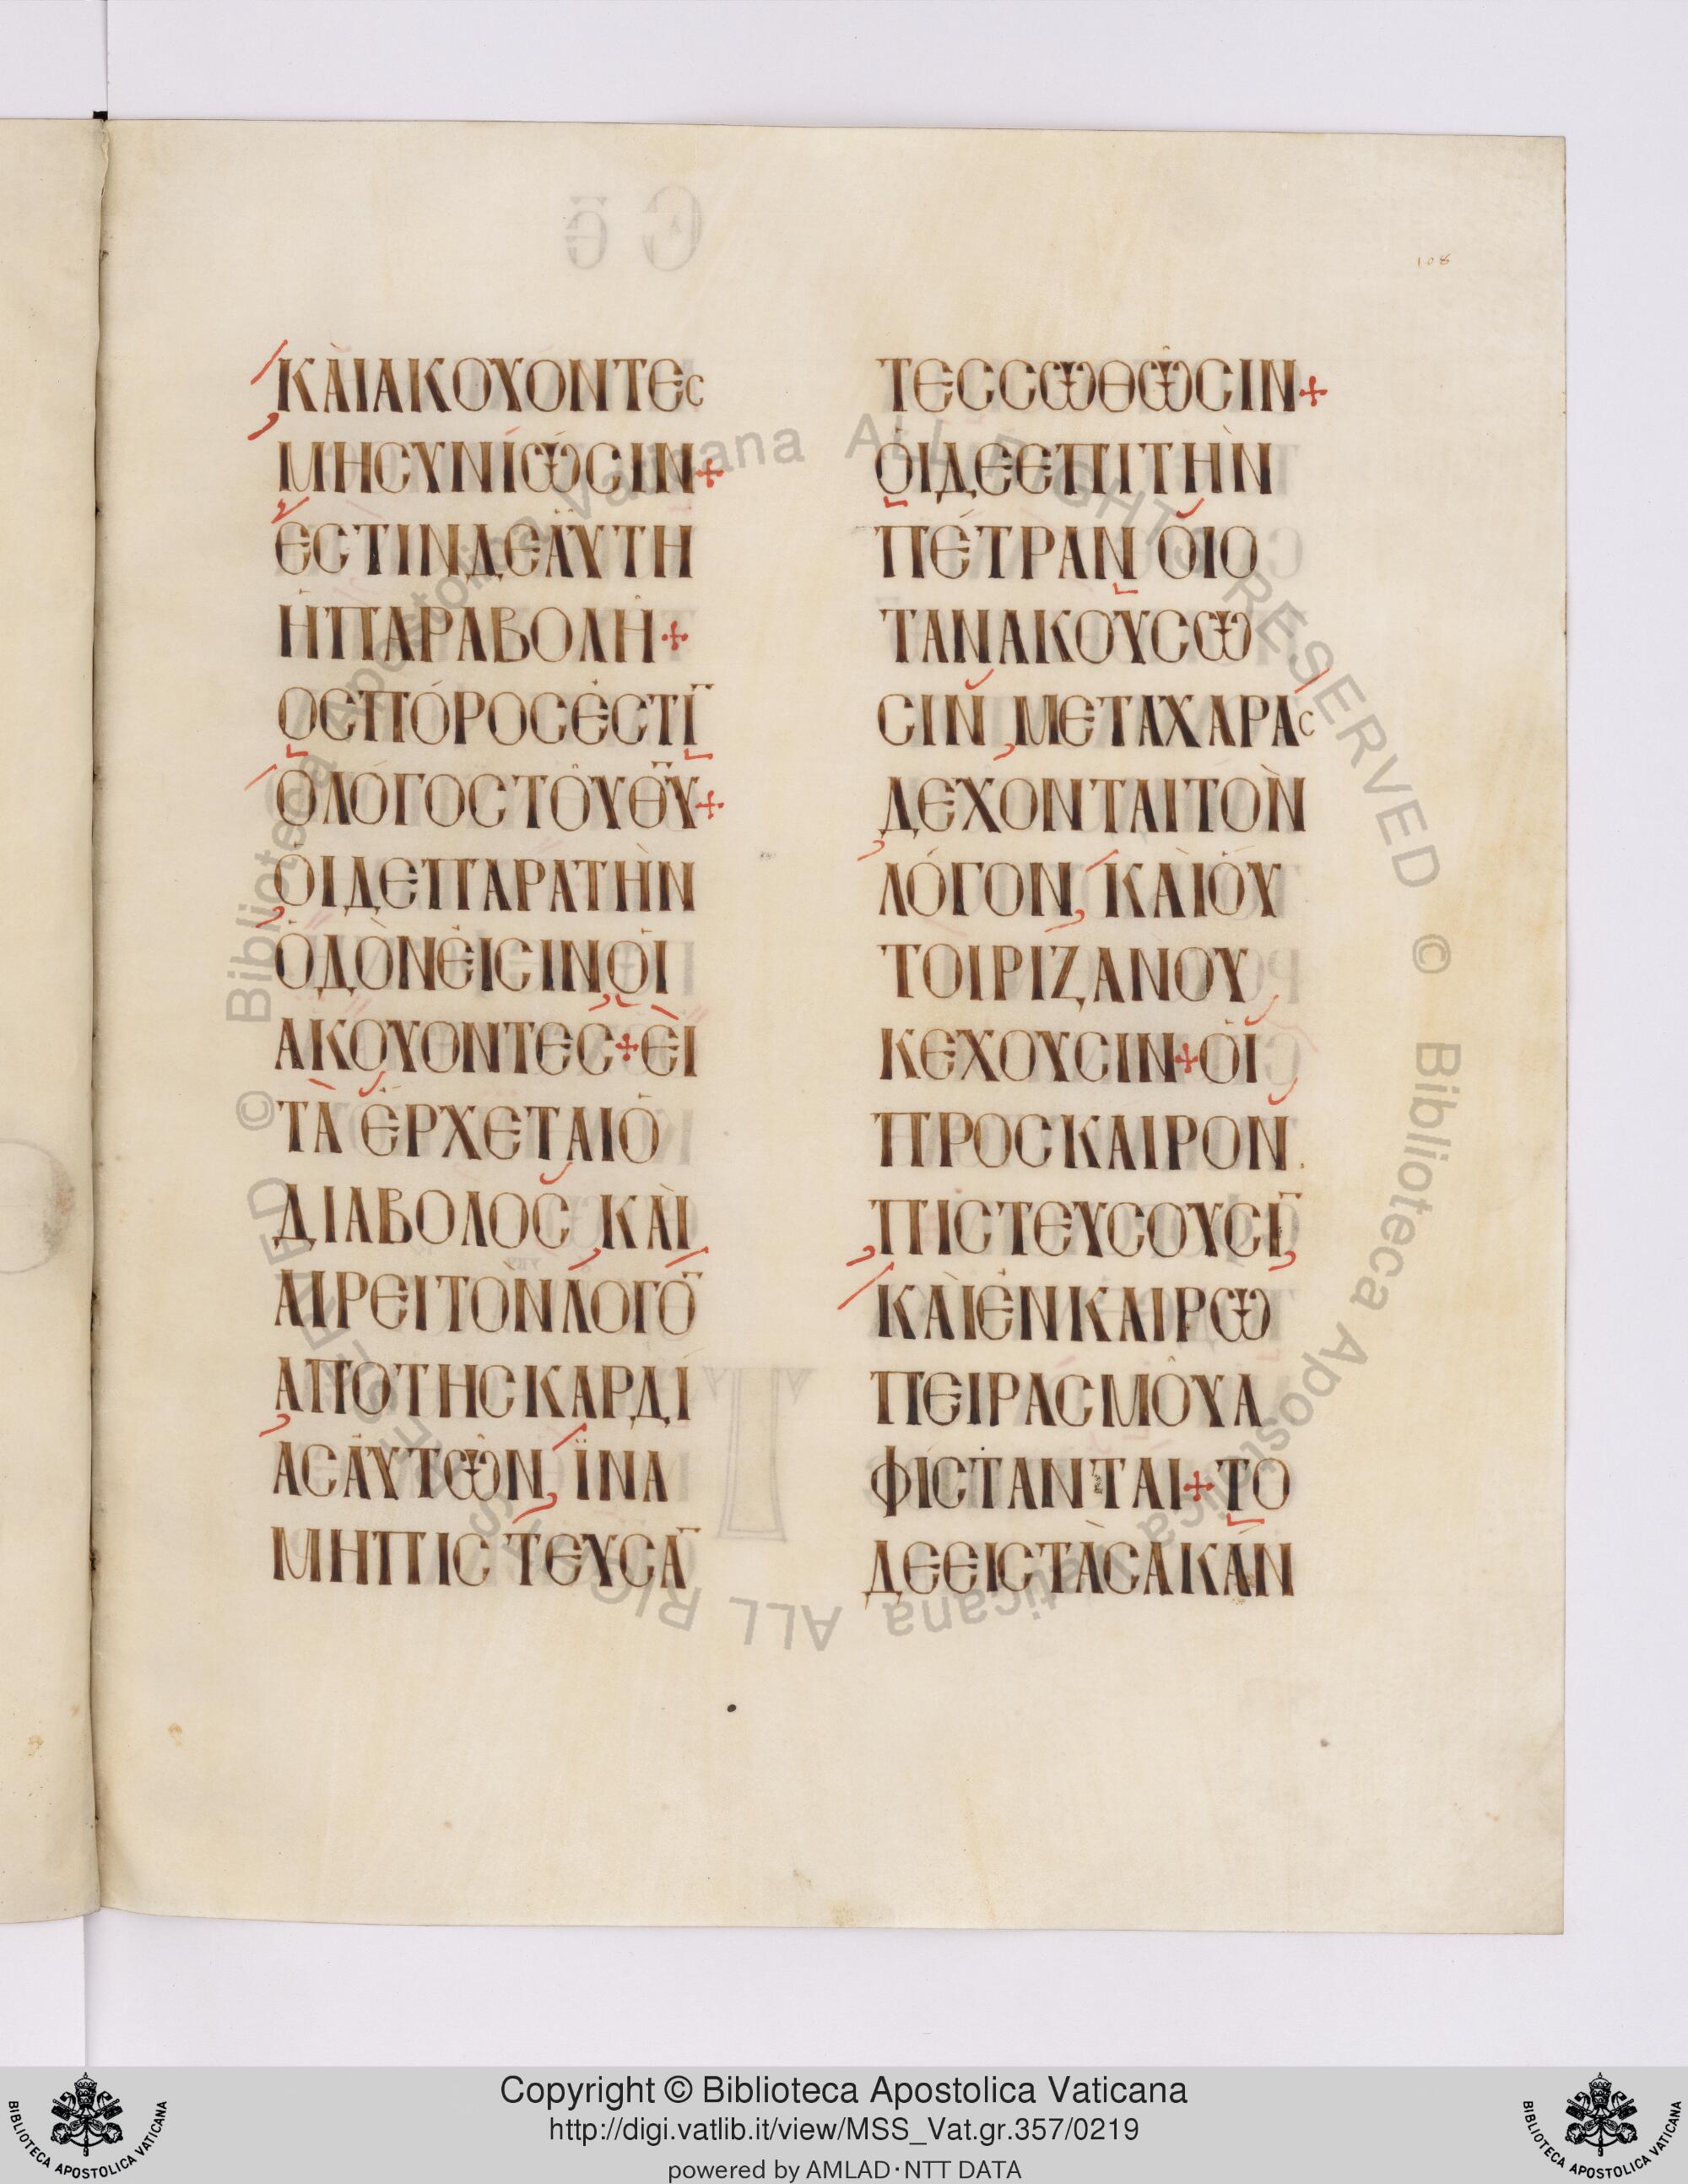 108
ΚΑῚΑΚΟΥΟΝΤΕC
ΜΗCΥΝΙΩ̃CΙΝ+
ΕCΤΙΝΔΕΑΥΤΗ
ἩΠΑΡΑΒΟΛΗ+
ΟCΠΌΡΟCΕCΤΙ̅
ΟΛΟΓΟCΤΟΥΘ̅Υ̅+
ΟΙΔΕΠΑΡΑΤῊΝ
ΟΔῸΝΕΙCΙΝΟΙ
ΑΚΟΥΟΝΤΕC+ΕΙ
ΤᾺ ΕΡΧΕΤΑΙΟ
ΔΙΑΒΟΛΟC, ΚΑῚ
ΑΙΡΕΙΤῸΝΛΟΓΟ̅
ΑΠΟΤΗCΚΑΡΔΊ
ΑCΑΥΤΩΝ, ΪΝΑ
ΜΗΠΙCΤΕΥCΑ̅
ΤΕCCΩΘΩCΙΝ+
ΟΙΔΕΕΠΙΤῊΝ
ΠΈΤΡΑΝ ΟΙΟ
ΤΑΝΑΚΟΥCΩ
CΙΝ, ΜΕΤΑΧΑΡΑC
ΔΕΧΟΝΤΑΙΤῸΝ
ΛΌΓΟΝ, ΚΑῚΟΥ
ΤΟΙΡΙΖΑΝΟΥ
ΚΕΧΟΥCΙΝ+ΟΙ
ΠΡΟCΚΑΙΡΟΝ.
ΠΙCΤΕΥCΟΥCΙ̅,
ΚΑῚΕΝΚΑΙΡΩ
ΠΕΙΡΑCΜΟΥΑ
ΦΙCΤΑΝΤΑΙ+ΤΟ
ΔΕΕΙCΤᾺCΑΚΑΝ
© Biblioteca Apostolica Vaticana ALL RIGHTS RESERVED © Biblioteca Apostolica Vaticana ALL RIGHTS RESERVED
Copyright © Biblioteca Apostolica Vaticana
http://digi.vatlib.it/view/MSS_Vat.gr.357/0219
powered by AMLAD·NTT DATA
BIBLIOTECA APOSTOLICA VATICANA
BIBLIOTECA APOSTOLICA VATICANA